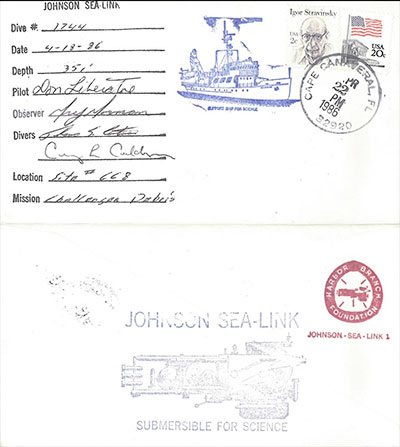 JOHNSON SEA-LINK
Dive #. 1744
Date 4-18-86
Depth 351'
Pilot Don Liberatore
Observer
Divers
Location Site # 668
Mission Challenger Debris
SUPPORT SHIP FOR SCIENCE
Igor Stravinsky
USA
2c
USA
20c
CAPE CANAVERAL, FL
APR
22
PM
1986
32920
HARBOR BRANCH
FOUNDATION
JOHNSON - SEA - LINK 1
JOHNSON SEA-LINK
SUBMERSIBLE FOR SCIENCE